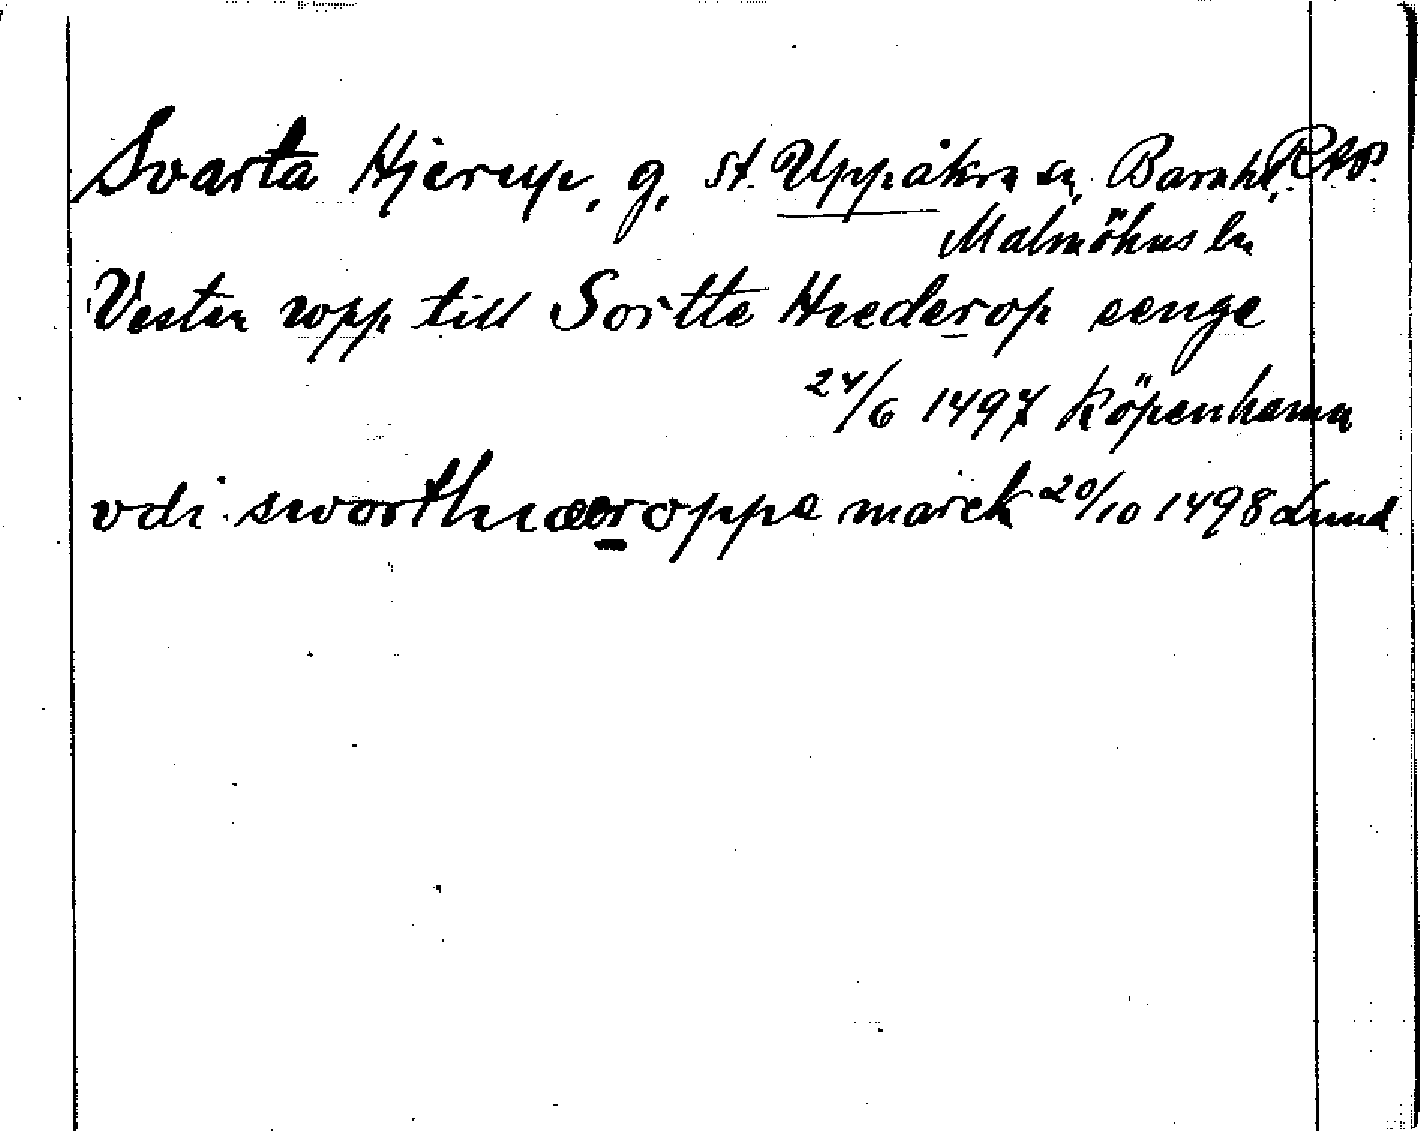 Svarta Hjerup, g. St. Uppåkra sn, Barahd,
Malmöhus ln
Vesten vopp till Sortte Hrederop senge
24/6 1497 Köpenhamn
vdi sworthræroppe marck 20/10 1498 Lund